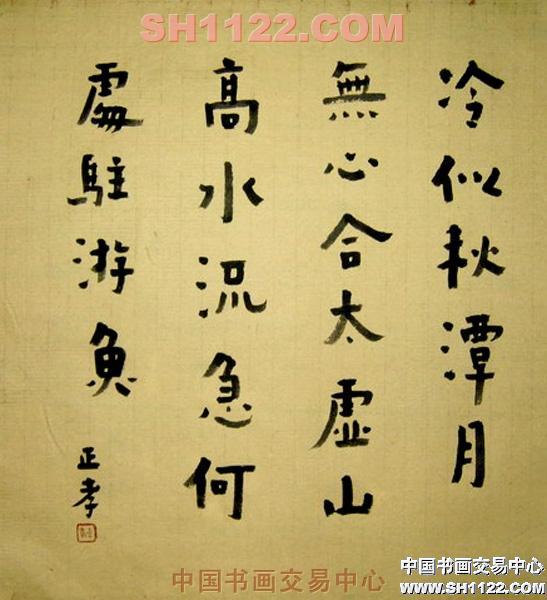 SH1122.COM
冷似秋潭月
無心合太虛山
高水流急何
處駐游魚
正孝
中国书画交易中心
中国书画交易中心
WWW.SH1122.COM